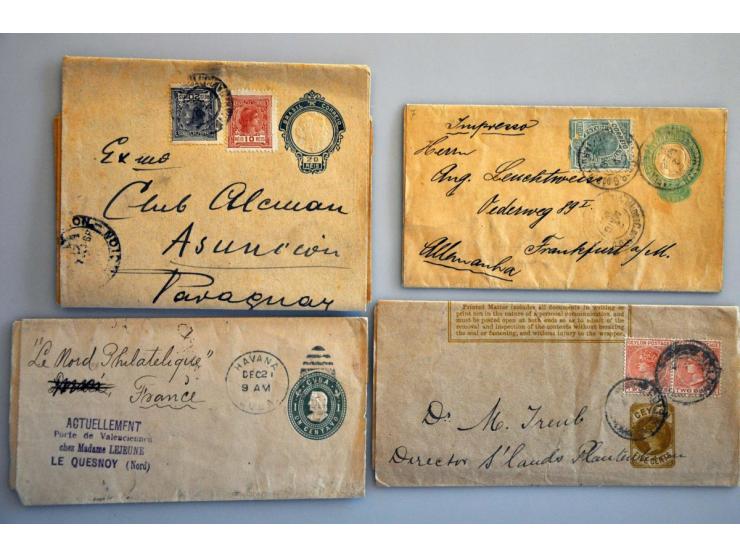 BRASIL CORREIO
20
REIS
10
Exmo
Club Aleman
Asunción
Paraguay
Impresso
Herrn
Aug. Leuchtweise
Oederweg 89 I.
Frankfurt a/M.
Allemanha
"Le Nord Philatelique"
France
HAVANA
DEC 21
9 AM
CUBA
1 1
UN CENTAVO
ACTUELLEMENT
Porte de Valenciennes
chez Madame LEJEUNE
LE QUESNOY (Nord)
Printed Matter includes all documents in writing or
print not in the nature of a personal communication, and
must be posted open at both ends so as to admit of the
removal and inspection of the contents without breaking
the seal or fastening, and without injury to the wrapper.
CEYLON POSTAGE
TWO
CEYLON
CENTS
Dr. M. Treub
Director S'Lands Plantentuin